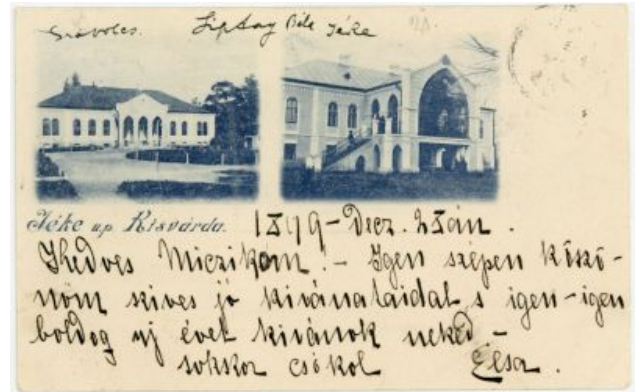 Szabolcs. Liptay Béla Jéke
Jéke u.p. Kisvárda. 1899 - Decz. 28án.
Kedves Miczikém! - Igen szépen köszö-
nöm szives jó kivánataidat, s igen-igen
boldog uj évet kivánok neked -
sokszor csókol Elsa.